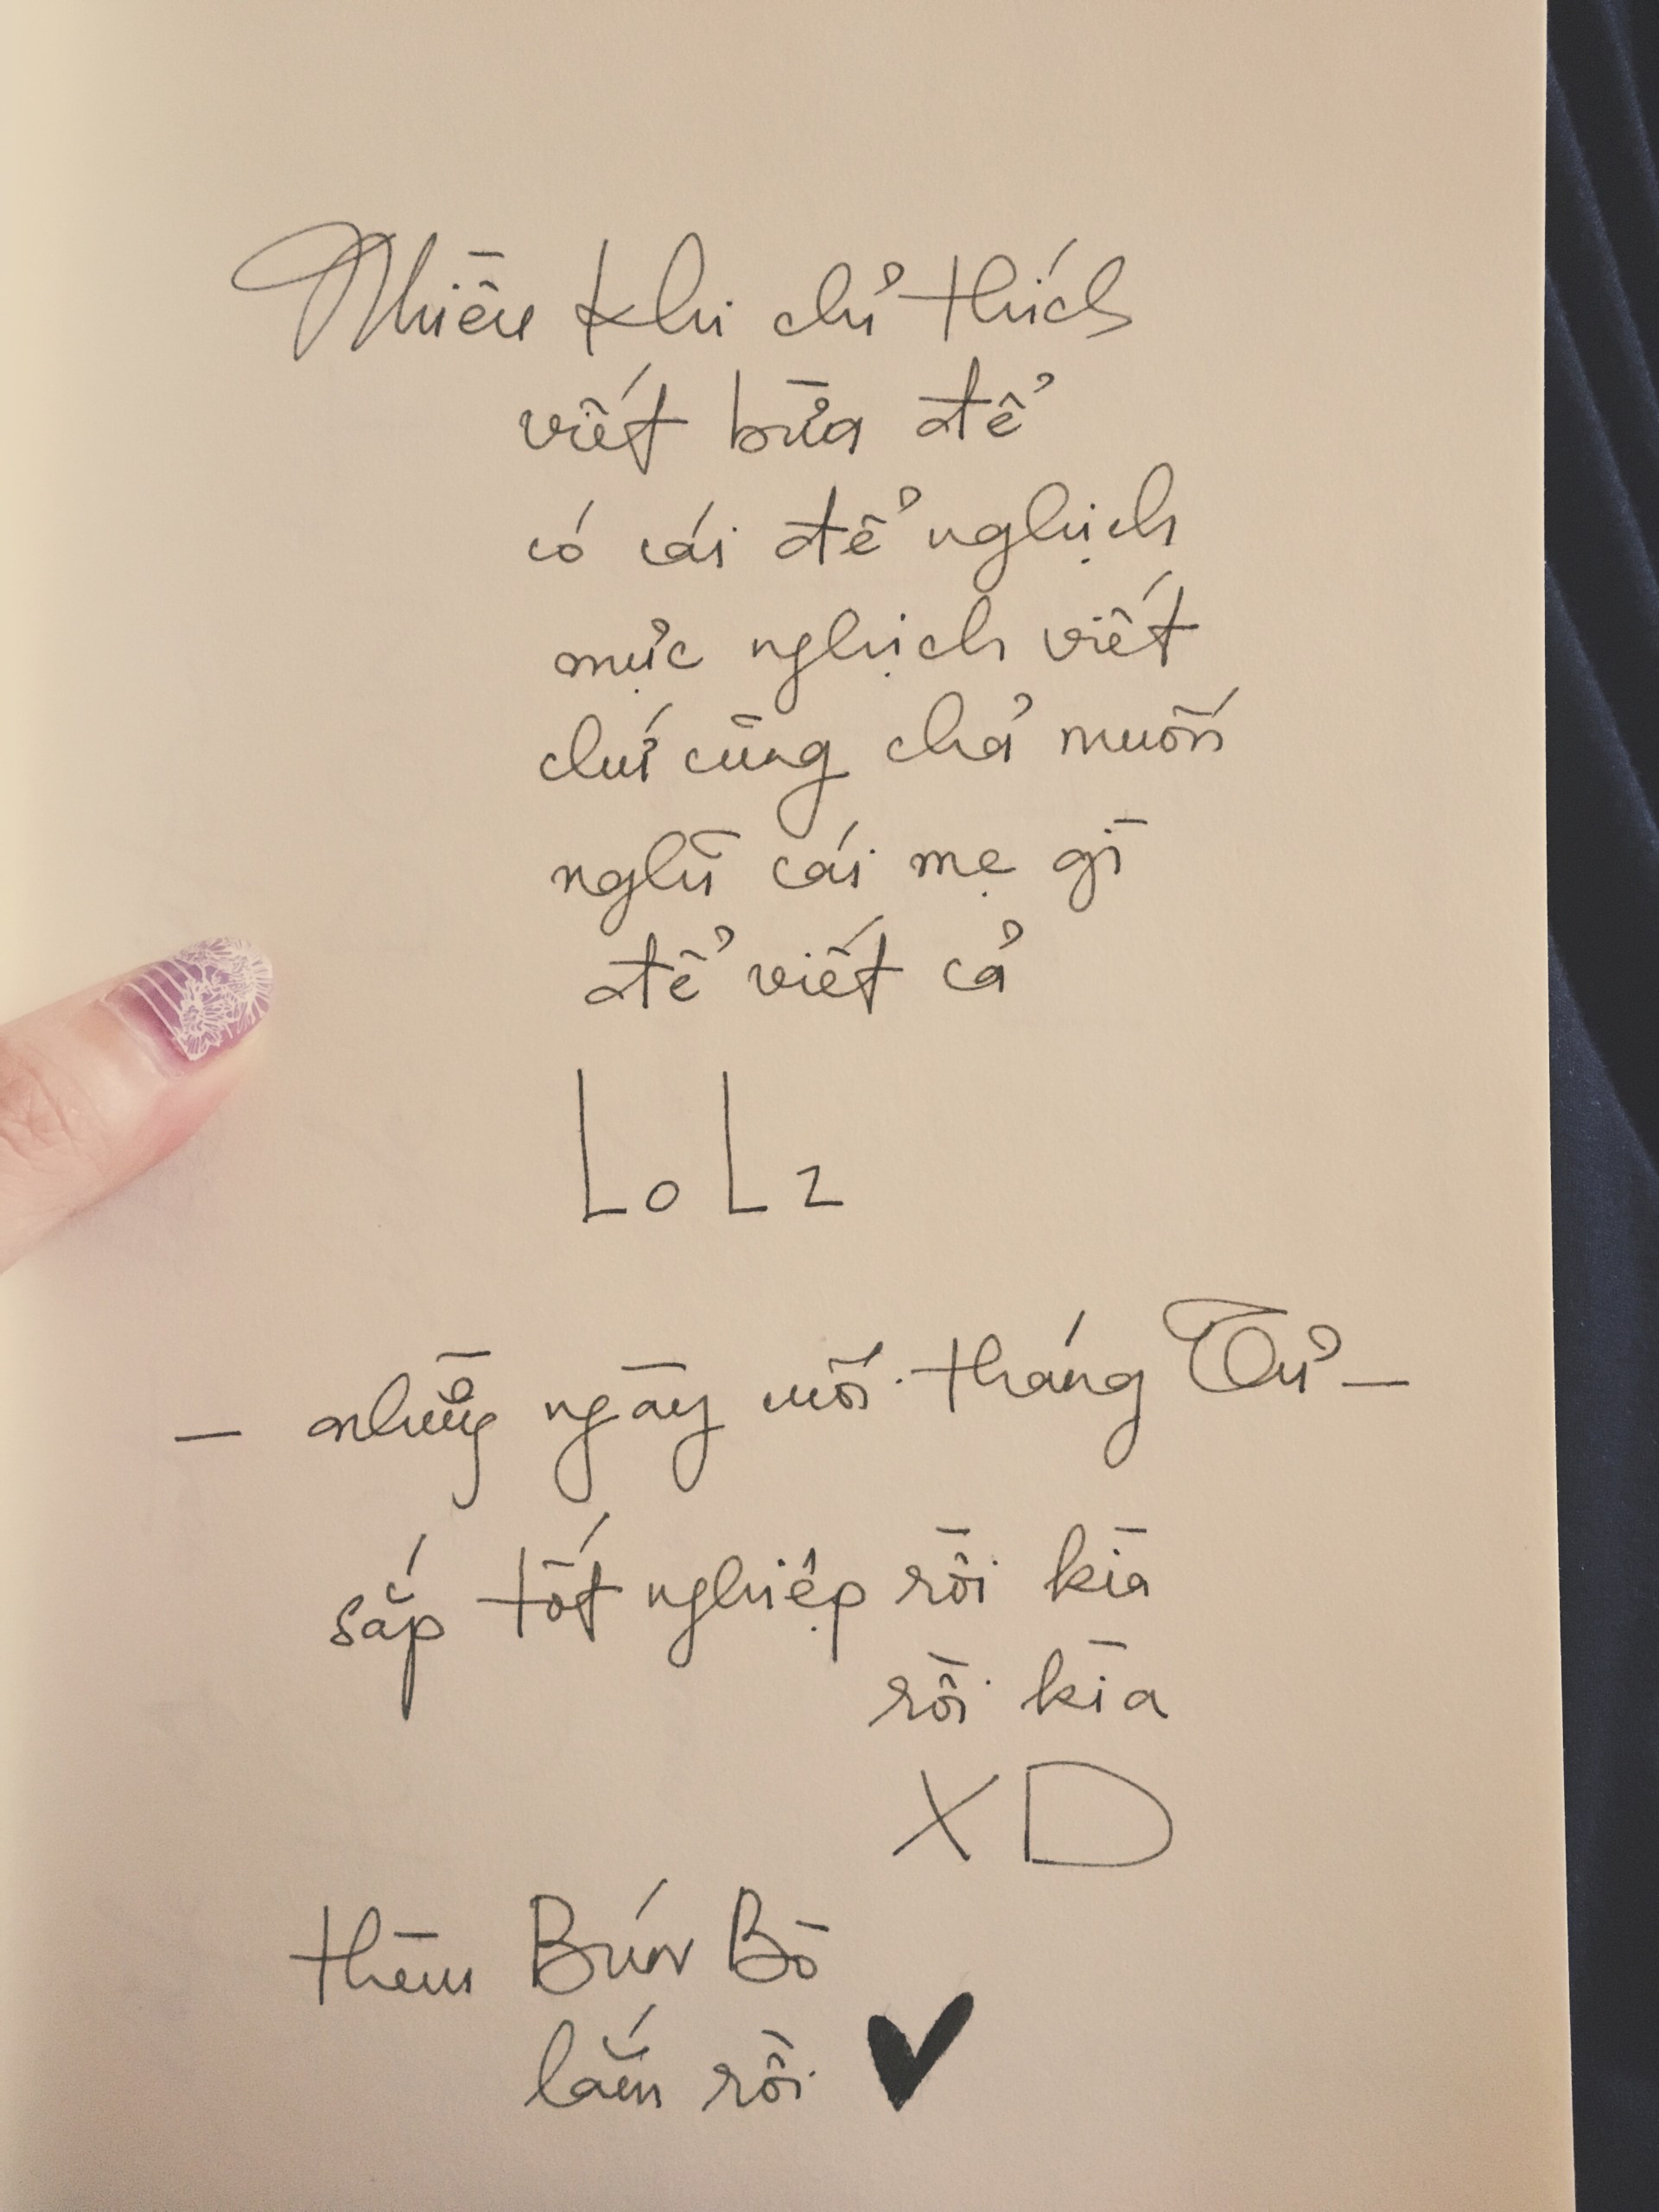 Nhiều khi chỉ thích
viết bừa để
có cái để nghịch
mực nghịch viết
chứ cũng chả muốn
nghĩ cái mẹ gì
để viết cả
LoLz
— những ngày cuối tháng Tư —
sắp tốt nghiệp rồi kìa
rồi kìa
XD
thèm Bún Bò
lắm rồi